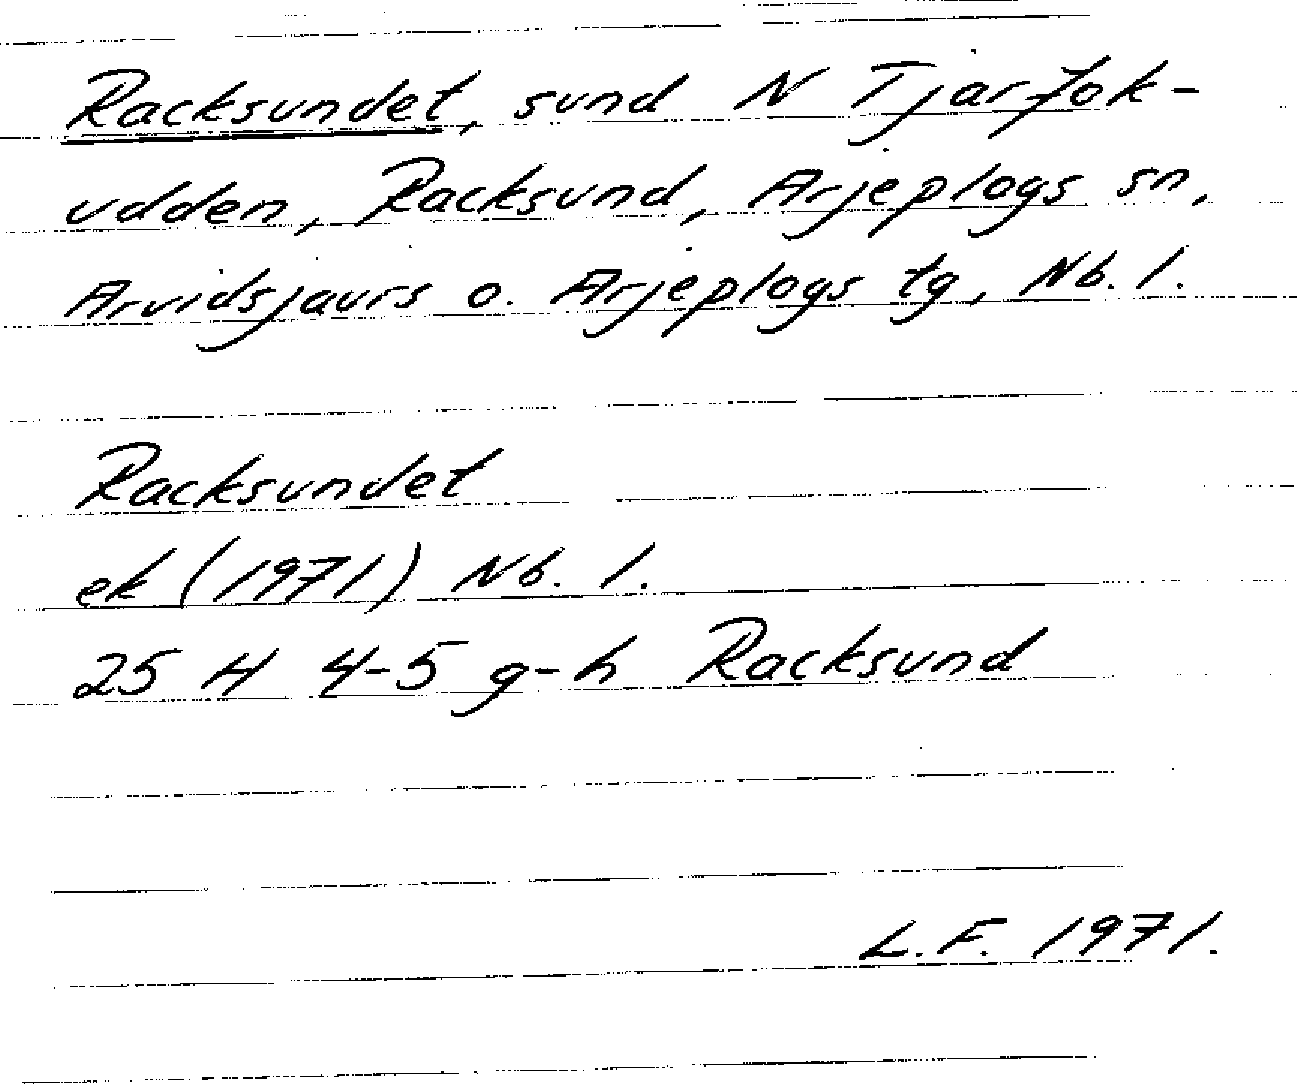 Racksundet, sund N Tjarfok-
udden, Racksund, Arjeplogs sn,
Arvidsjaurs o. Arjeplogs tg, Nb. l.
Racksundet
ek (1971) Nb. l.
25 H 4-5 g-h Racksund
L.F. 1971.